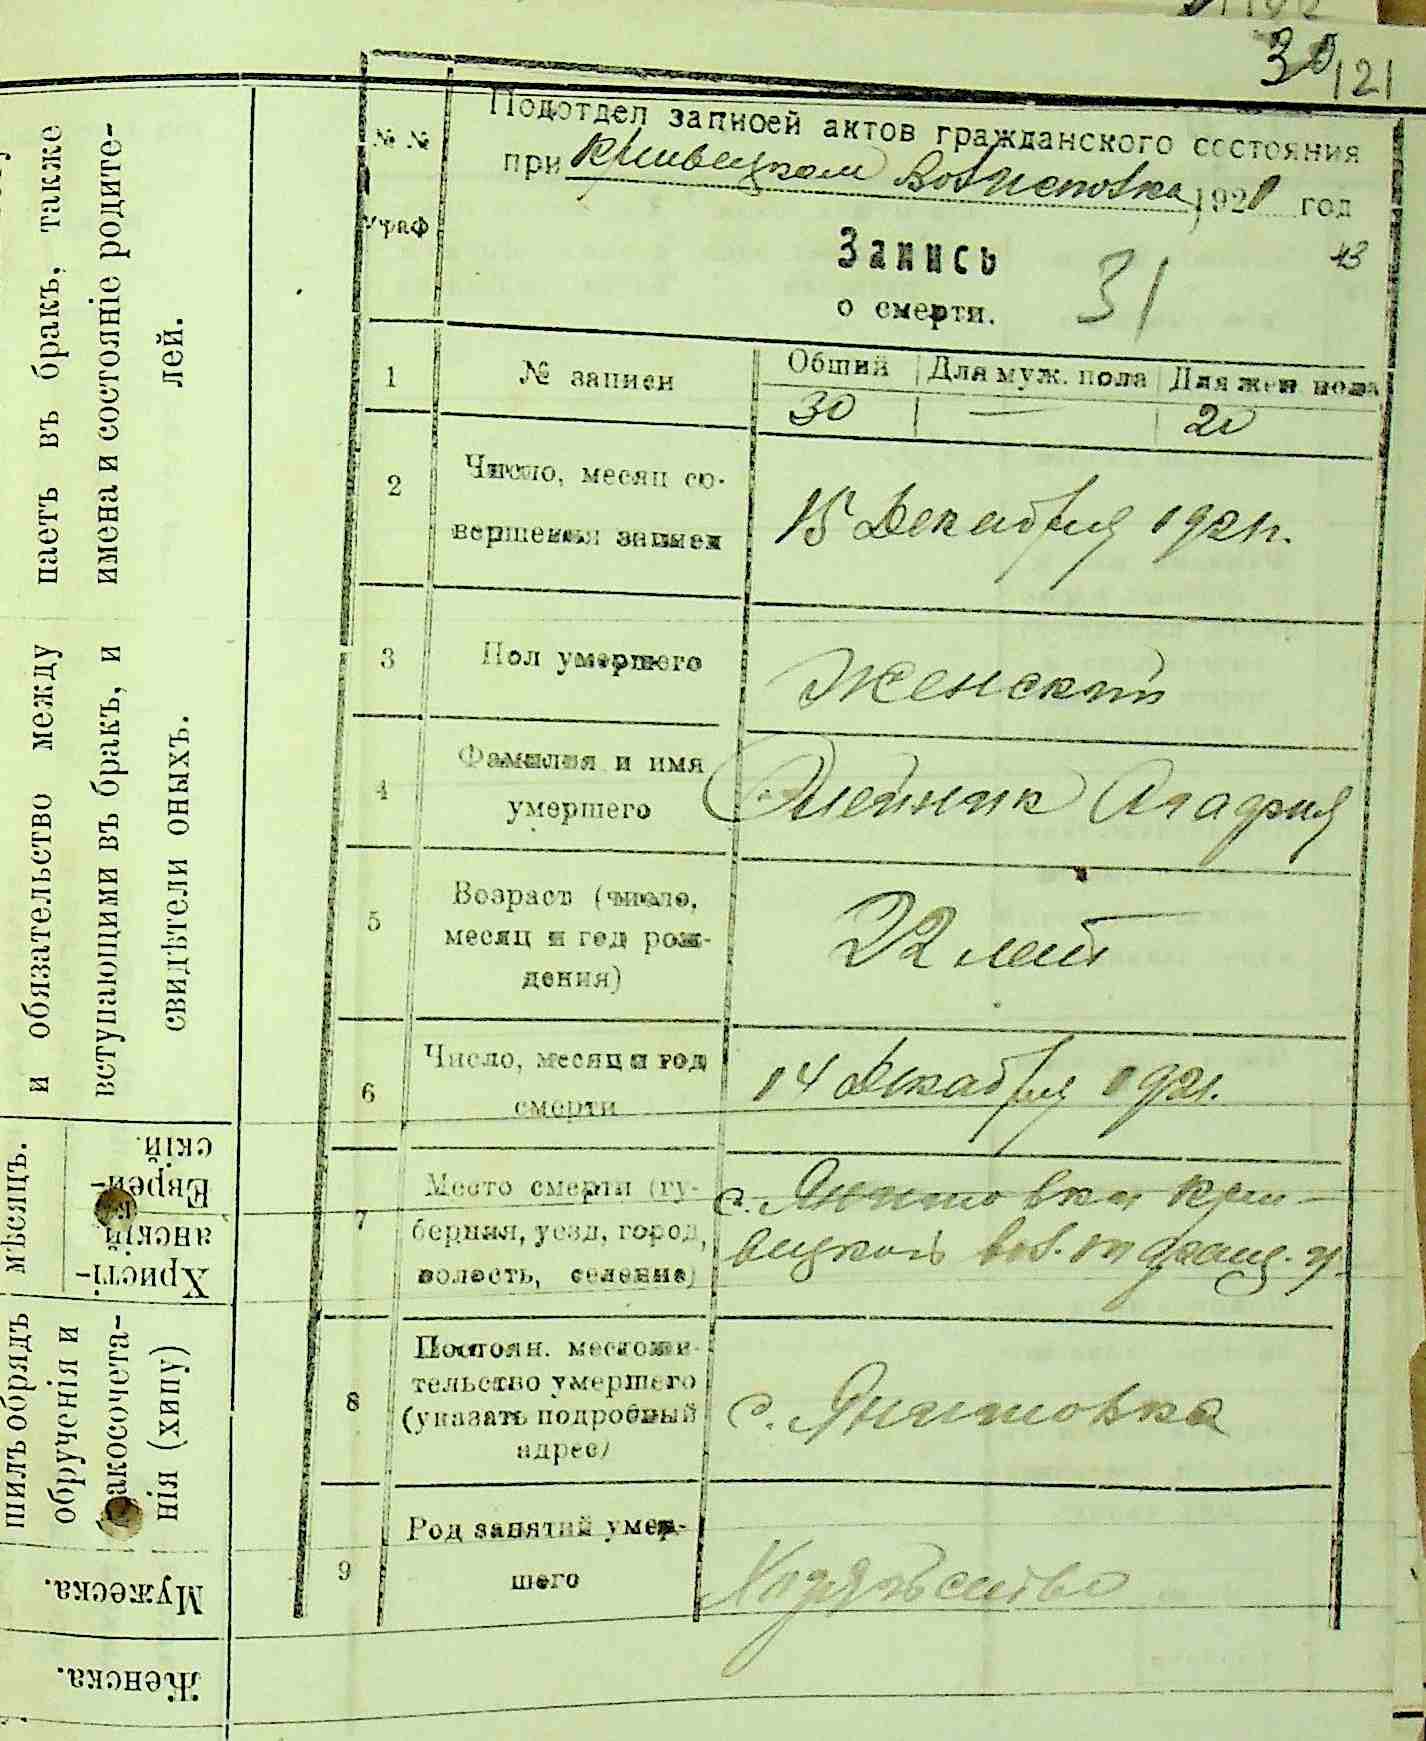 30
121
Подотдел записей актов гражданского состояния
при Кривецком Волисполкома 1921 год
43
Запись
о смерти.
31
№ №
граф
1
№ записи
Общий
Для муж. пола
Для жен пола
30
—
20
2
Число, месяц со-
вершения записи
15 Декабря 1921 г.
3
Пол умершего
Женский
4
Фамилия и имя
умершего
Олейник Агафия
5
Возраст (число,
месяц и год рож-
дения)
22 лет
6
Число, месяц и год
смерти
14 Декабря 1921.
7
Место смерти (гу-
берния, уезд, город,
волость, селение)
с. Янишовка Кри-
вецкой вол.
8
Постоян. местожи-
тельство умершего
(указать подробный
адрес)
с. Янишовка
9
Род занятий умер-
шего
Хозяйство
и обязательство между
вступающими въ бракъ, и
свидѣтели оныхъ.
паетъ въ бракъ, также
имена и состояніе родите-
лей.
мѣсяцъ.
Христі-
анскій
Еврей-
скій.
шилъ обрядъ
обрученія и
бракосочета-
нія (хипу)
Мужеска.
Женска.